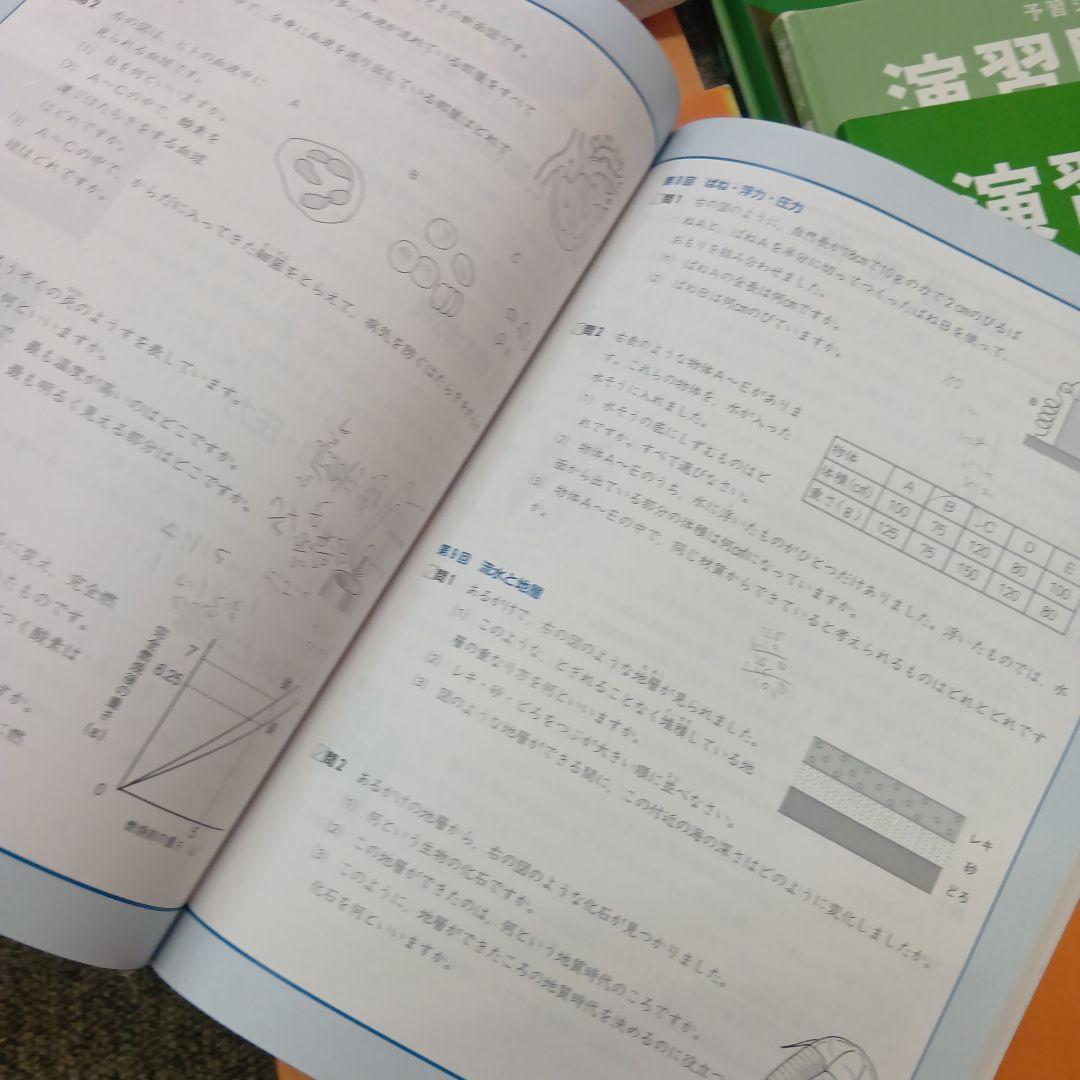 問2 右の図は、ヒトの血液中に
見られる血球です。
(1) Bを何といいますか。
(2) A〜Cの中で、酸素を
運ぶはたらきをする血球
はどれですか。
(3) A〜Cの中で、からだに入ってきた細菌をとらえて、病気を防ぐはたらきをする
球はどれですか。
A
B
C
ろうそくの炎のようすを表しています。
何といいますか。
最も温度が高いのはどこですか。
最も明るく見える部分はどこですか。
に変え、完全燃
たものです。
つく酸素は
すか。
7
6.25
0
5
(g)
予習
演習
演習
第8回 ばね・浮力・圧力
問1 右の図のように、自然長が18cmで10gの力で2cmのびるば
ねAと、ばねAを半分に切ってつくったばねBを使って、
おもりを組み合わせました。
(1) ばねAの全長は何cmですか。
(2) ばねBは何cmのびていますか。
B
問2 右表のような物体A〜Eがありま
す。これらの物体を、水が入った
水そうに入れました。
(1) 水そうの底にしずむものはど
れですか。すべて選びなさい。
(2) 物体A〜Eのうち、水に浮いたものがひとつだけありました。浮いたものでは、水
面から出ている部分の体積は何cm³になっていますか。
(3) 物体A〜Eの中で、同じ材質からできていると考えられるものはどれとどれです
か。
物体 A B C D E
体積(cm³) 100 75 120 80 100
重さ(g) 125 75 150 120 80
第9回 流水と地層
問1 あるがけで、右の図のような地層が見られました。
(1) このような、とぎれることなく堆積している地
層の重なり方を何といいますか。
(2) レキ・砂・どろをつぶが大きい順に並べなさい。
(3) 図のような地層ができる間に、この付近の海の深さはどのように変化しましたか。
レキ
砂
どろ
問2 あるがけの地層から、右の図のような化石が見つかりました。
(1) 何という生物の化石ですか。
(2) この地層ができたのは、何という地質時代のころですか。
(3) このように、地層ができたころの地質時代を決めるのに役立つ
化石を何といいますか。